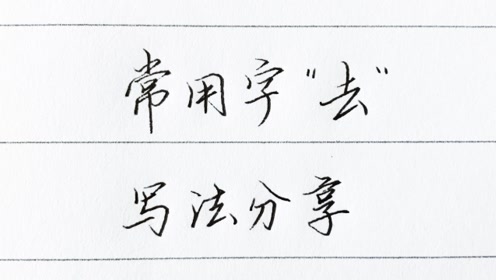 常用字"去"
写法分享